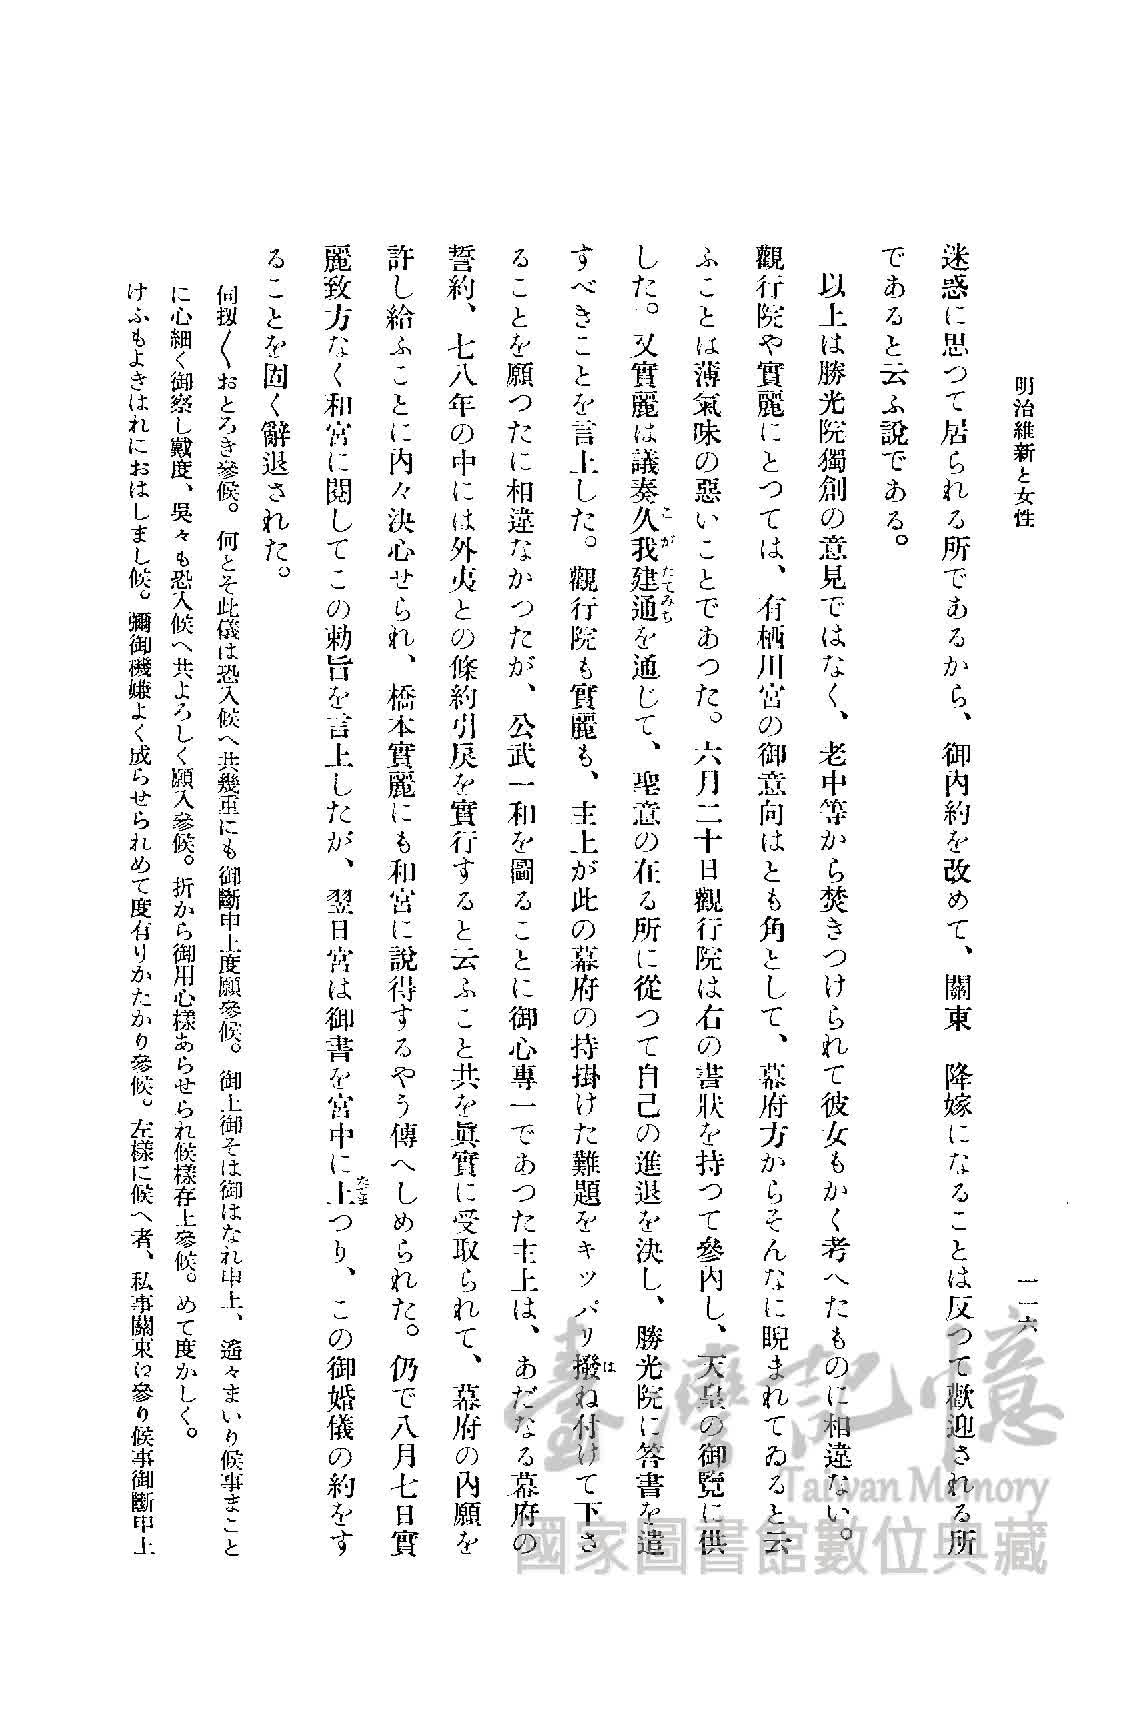 明治維新と女性
一一六
迷惑に思つて居られる所であるから、御内約を改めて、關東　降嫁になることは反つて歡迎される所
であると云ふ說である。
以上は勝光院獨創の意見ではなく、老中等から焚きつけられて彼女もかく考へたものに相違ない。
觀行院や實麗にとつては、有栖川宮の御意向はとも角として、幕府方からそんなに睨まれてゐると云
ふことは薄氣味の惡いことであつた。六月二十日觀行院は右の書狀を持つて參內し、天皇の御覽に供
した。又實麗は議奏久我建通を通じて、聖意の在る所に從つて自己の進退を決し、勝光院に答書を遣
こ が たてみち
すべきことを言上した。觀行院も實麗も、主上が此の幕府の持掛けた難題をキッパリ撥ね付けて下さ
は
ることを願つたに相違なかつたが、公武一和を圖ることに御心專一であつた主上は、あだなる幕府の
誓約、七八年の中には外夷との條約引戾を實行すると云ふこと共を眞實に受取られて、幕府の內願を
許し給ふことに內々決心せられ、橋本實麗にも和宮に說得するやう傳へしめられた。仍で八月七日實
麗致方なく和宮に閱してこの勅旨を言上したが、翌日宮は御書を宮中に上つり、この御婚儀の約をす
たてま
ることを固く辭退された。
伺扨〱おとろき參候。何とそ此儀は恐入候へ共幾重にも御斷申上度願參候。御上御そは御はなれ申上、遙々まいり候事まこと
に心細く御察し戴度、吳々も恐入候へ共よろしく願入參候。折から御用心樣あらせられ候樣存上參候。めて度かしく。
けふもよきはれにおはしまし候。彌御機嫌よく成らせられめて度有りかたかり參候。左樣に候へ者、私事關東に參り候事御斷申上
臺灣記憶
Taiwan Memory
國家圖書館數位典藏